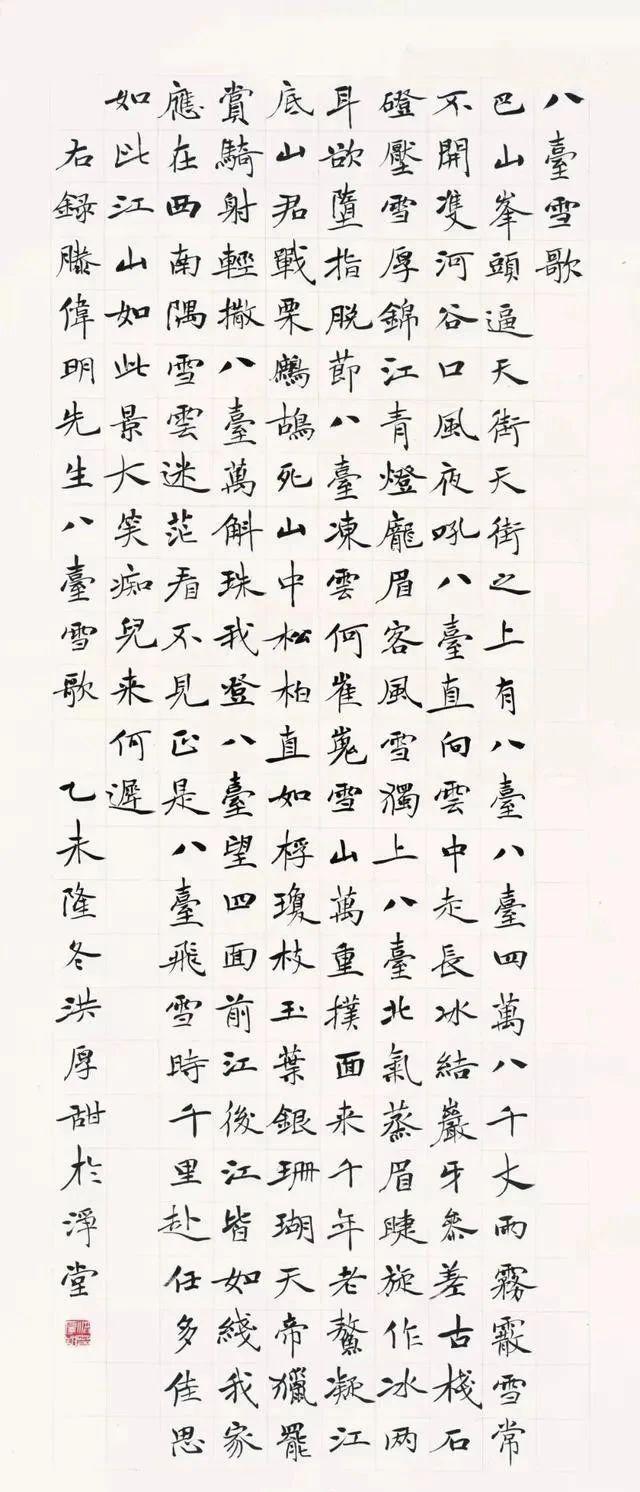 八臺雪歌
巴山峯頭逼天街天街之上有八臺八臺四萬八千丈雨霧霰雪常
不開雙河谷口風夜吼八臺直向雲中走長冰結巖牙參差古棧石
磴壓雪厚錦江青燈龐眉客風雪獨上八臺北氣蒸眉睫旋作冰两
耳欲墮指脱節八臺凍雲何崔嵬雪山萬重撲面来千年老鰲凝江
底山君戰栗鷓鴣死山中松柏直如桴瓊枝玉葉銀珊瑚天帝獵罷
賞騎射輕撒八臺萬斛珠我登八臺望四面前江後江皆如綫我家
應在西南隅雪雲迷茫看不見正是八臺飛雪時千里赴任多佳思
如此江山如此景大笑痴兒来何遲
右録滕偉明先生八臺雪歌 乙未隆冬洪厚甜於淨堂